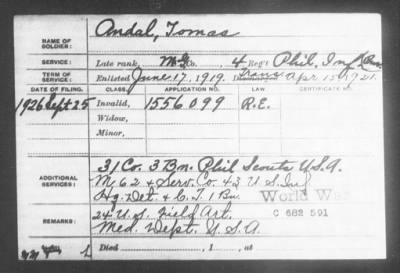 NAME OF SOLDIER: Andal, Tomas
SERVICE: Late rank, Co. 4 Reg't Phil. Inf.
TERM OF SERVICE: Enlisted June 17, 1919. Trans Apr 15, 1921.
DATE OF FILING. CLASS. APPLICATION NO. LAW CERTIFICATE NO.
1926 Sept 25 Invalid, 1556099 R.E.
Widow,
Minor,
31 Co. 3 Bn. Phil Scouts U.S.A.
ADDITIONAL SERVICES: & Serv. Co. 45 U.S. Inf
Hq. Det. & C.T. 1 Bn. World War
REMARKS: 24 U.S. Field Art. C 682 591
Med. Dept. U.S.A.
Died , 1 , at